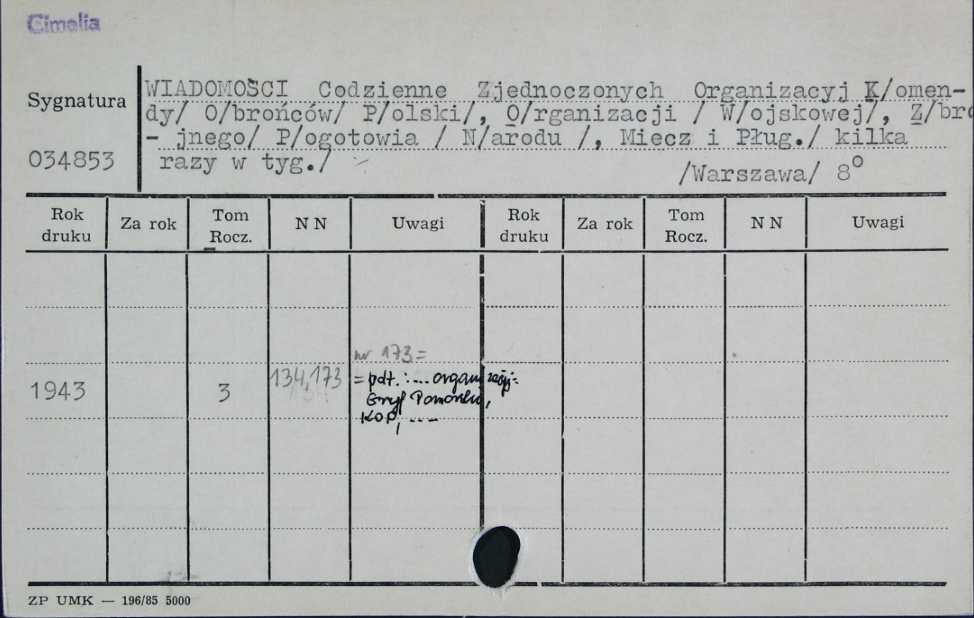 Cimelia
Sygnatura
034853
WIADOMOŚCI Codzienne Zjednoczonych Organizacyj K/omen-
dy/ O/brońców/ P/olski/, O/rganizacji / W/ojskowej/, Z/bro
- jnego/ P/ogotowia / N/arodu /, Miecz i Pług./ kilka
razy w tyg./
/Warszawa/ 8°
Rok druku Za rok Tom Rocz. N N Uwagi Rok druku Za rok Tom Rocz. N N Uwagi
nr 173 =
1943 3 134,173 = pdt. : ... organizacyj:
Gryf Pomorski,
KOP, ...
ZP UMK — 196/85 5000